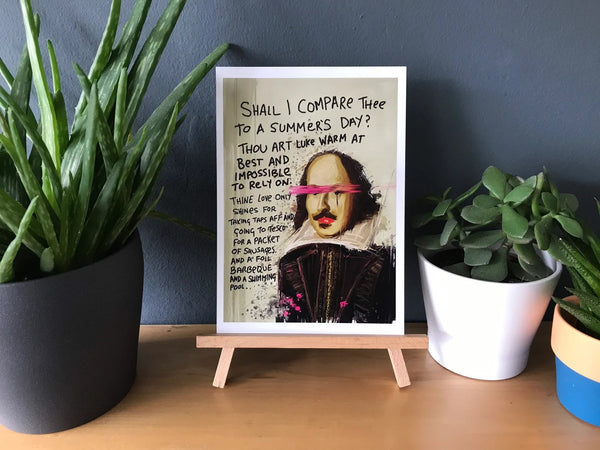 SHALL I COMPARE THEE
TO A SUMMER'S DAY?
THOU ART LUKE WARM AT
BEST AND
IMPOSSIBLE
TO RELY ON.
THINE LOVE ONLY
SHINES FOR
TAKING TAPS AFF AND
GOING TO TESCO
FOR A PACKET
OF SAUSAGES.
AND A FOIL
BARBEQUE
AND A SWIMMING
POOL..